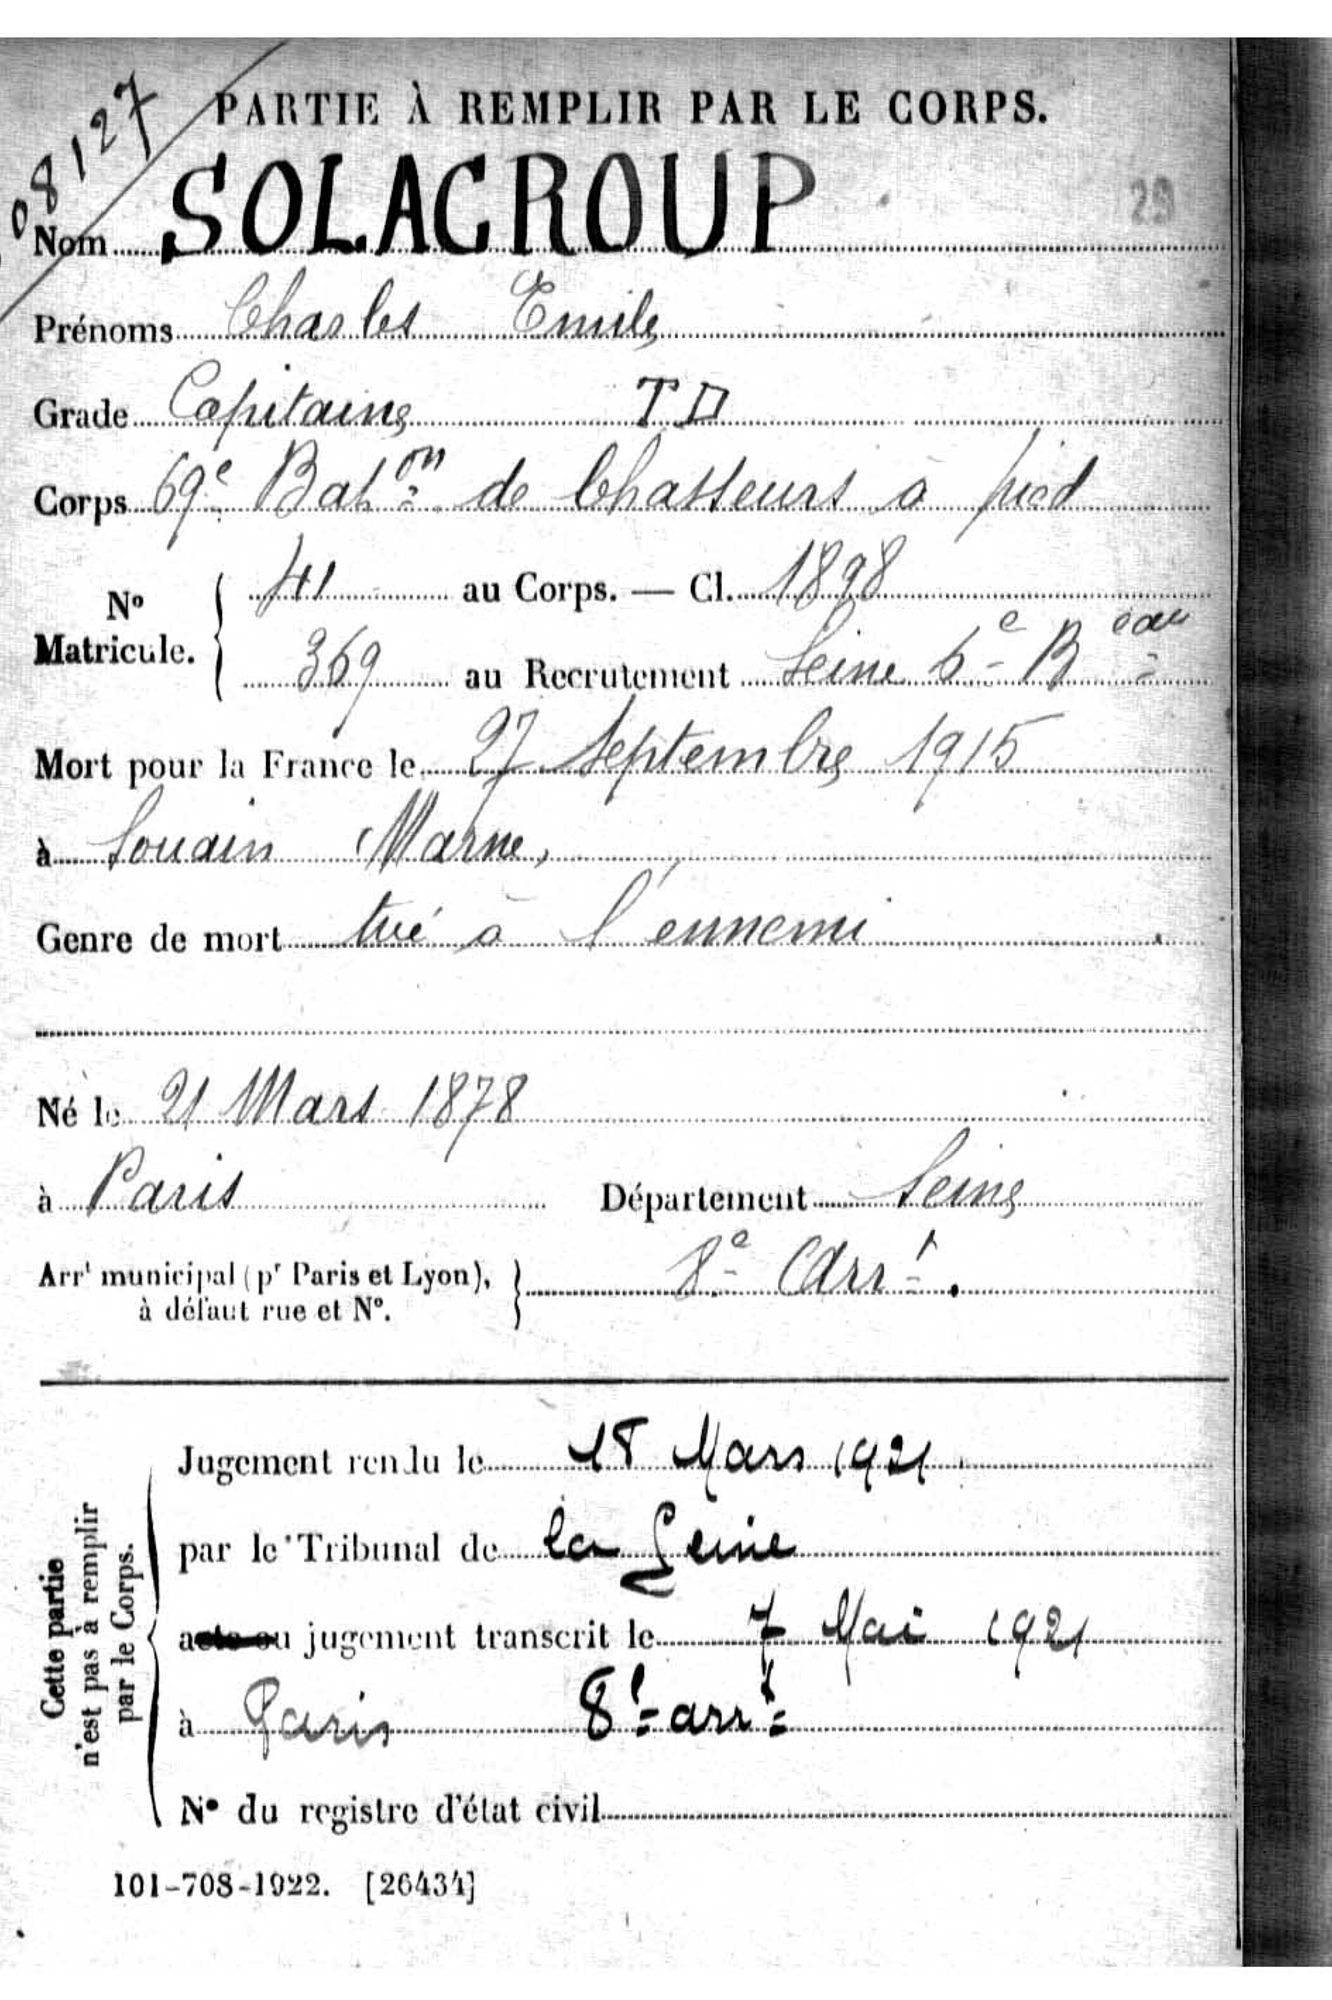 08127
PARTIE À REMPLIR PAR LE CORPS.
29
Nom SOLACROUP
Prénoms Charles Emile
Grade Capitaine TD
Corps 69e Baton de Chasseurs à pied
N° Matricule. 41 au Corps. — Cl. 1898
369 au Recrutement Seine 6e Beau
Mort pour la France le 27 Septembre 1915
à Souain Marne,
Genre de mort tué à l'ennemi
Né le 21 Mars 1878
à Paris Département Seine
Arrt municipal (pr Paris et Lyon), à défaut rue et N°. 8e Arrt.
Cette partie n'est pas à remplir par le Corps.
Jugement rendu le 18 Mars 1921
par le Tribunal de la Seine
acte ou jugement transcrit le 7 Mai 1921
à Paris 8e arrt
N° du registre d'état civil
101-708-1922. [26434]